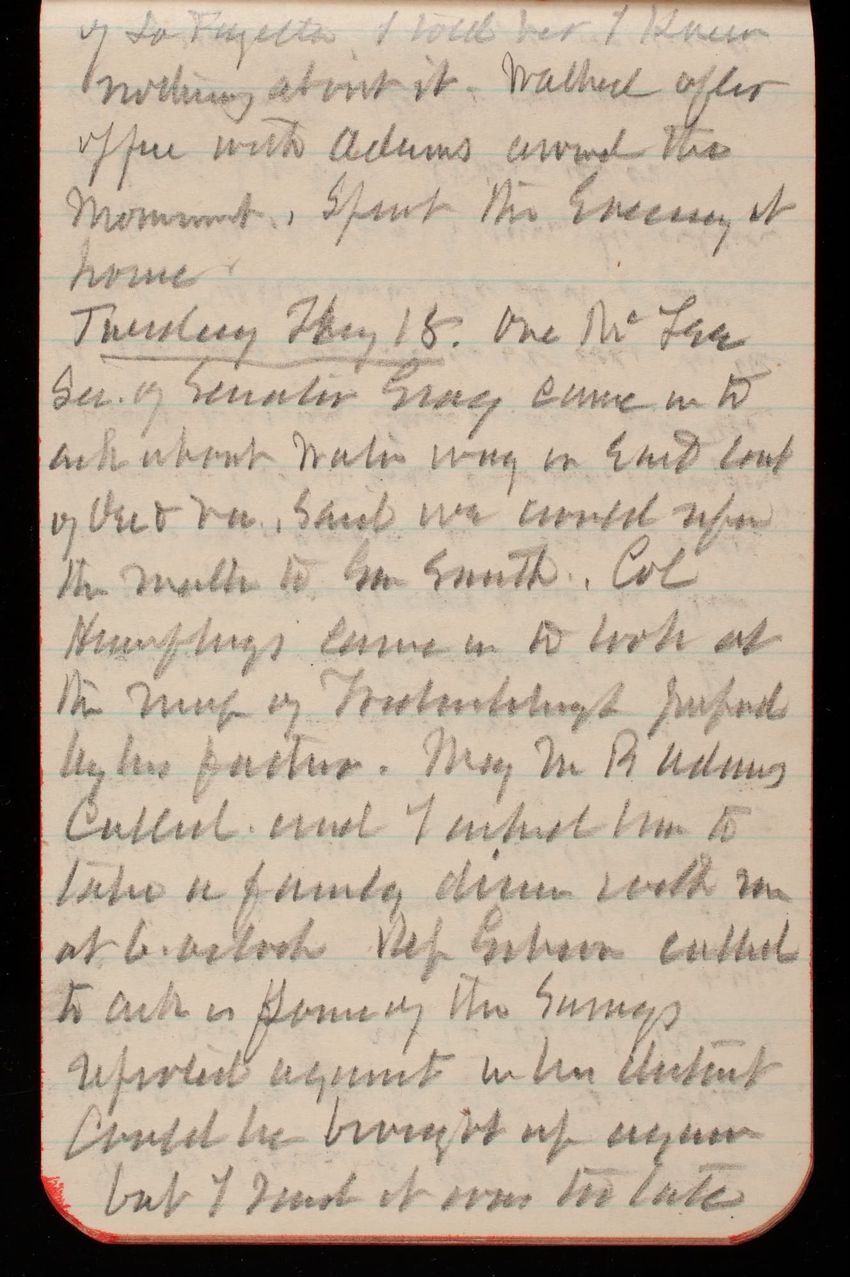 of La Fayette I told her I knew
nothing about it. Walked after
office with Adams around the
Monument. Spent the Evening at
home
Tuesday 18. One Mr
Sec. of Senator Gray came in to
ask about Water way on East coast
of Del & Va. Said we could
the matter to Gen Smith. Col
Humphreys came in to look at
the map of
by his father. Maj M R Adams
Called and I asked him to
take a family dinner with me
at 6. oclock Rep Gibson called
to ask is some of the Surveys
reported against in his district
Could be brought up again
but I said it was too late